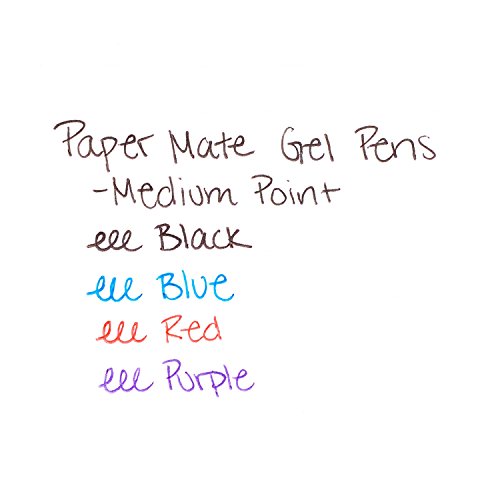 Paper Mate Gel Pens
-Medium Point
eee Black
eee Blue
eee Red
eee Purple